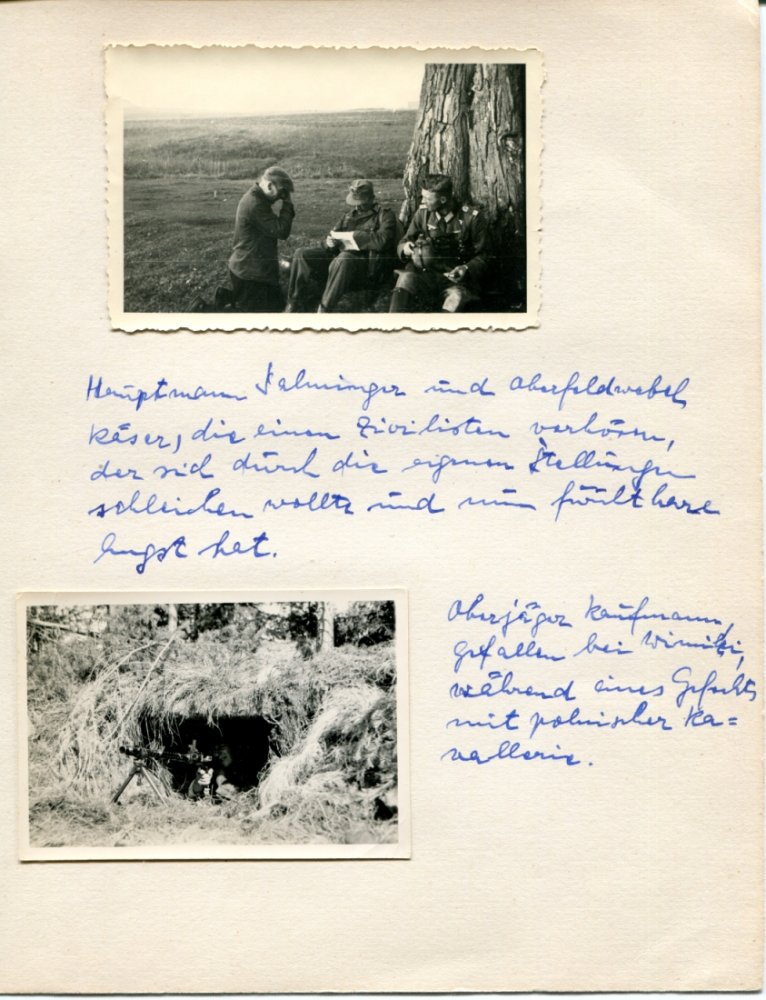 Hauptmann Salminger und Oberfeldwebel
Käser, die einen Zivilisten verhören,
der sich durch die eigenen Stellungen
schleichen wollte und nun furchtbare
Angst hat.
Oberjäger Kaufmann,
gefallen bei Winniki,
während eines Gefechts
mit polnischer Ka=
vallerie.